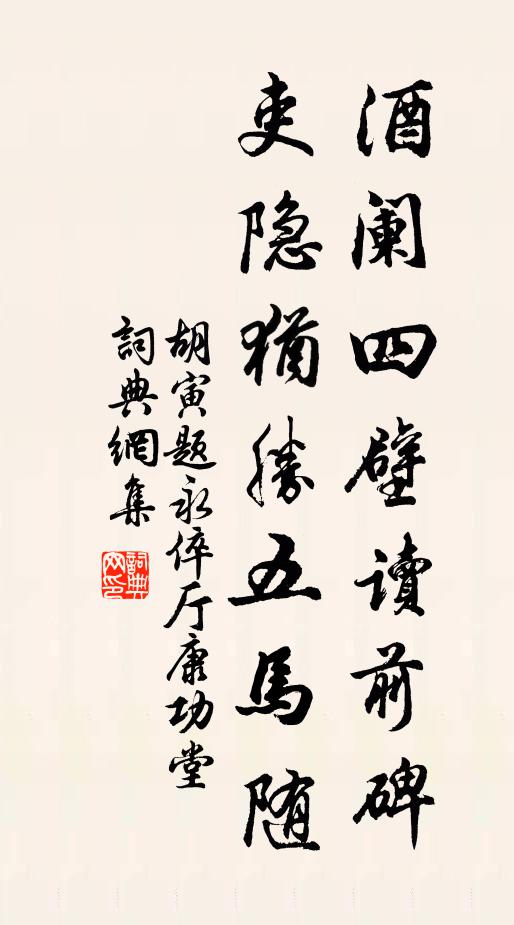 酒阑四壁读前碑
吏隐犹胜五馬随
胡寅题永倅厅康功堂
詞典網集
詞典网印